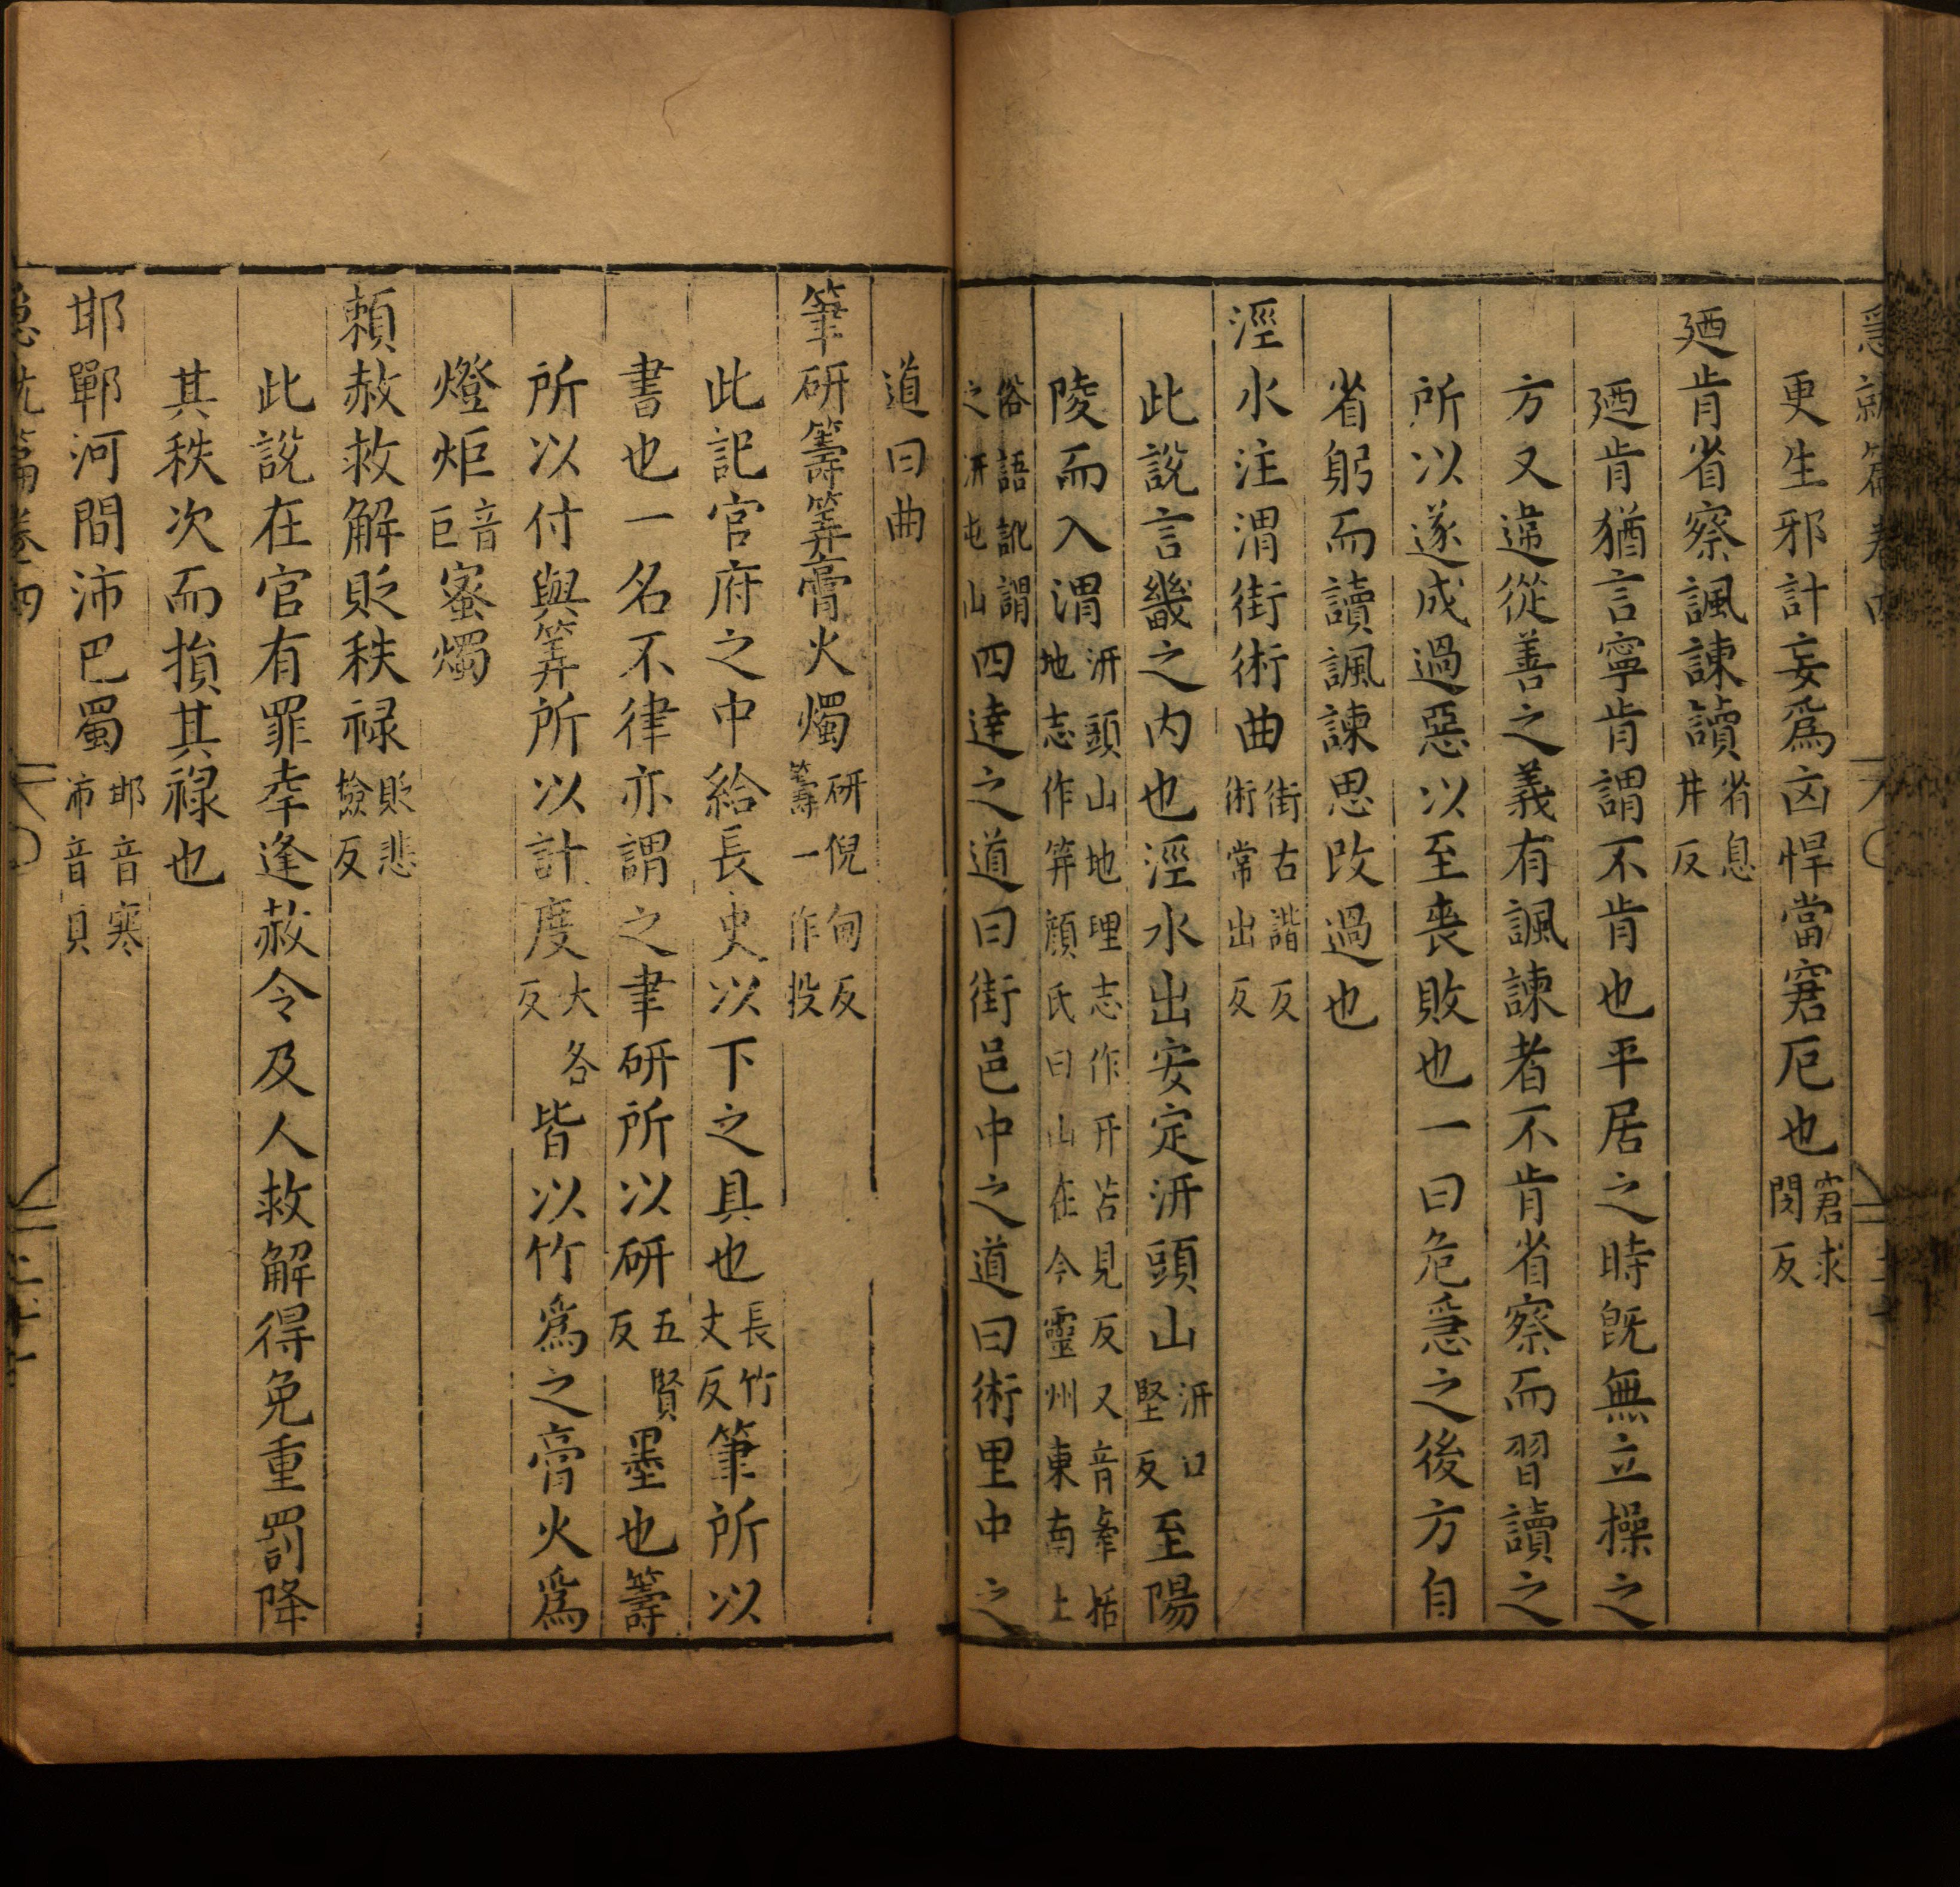 急就篇卷四
更生邪計妄爲凶悍當窘厄也窘求閔反
廼肯省察諷諫讀省息井反
廼肯猶言寧肯謂不肯也平居之時旣無立操之
方又違從善之義有諷諫者不肯省察而習讀之
所以遂成過惡以至喪敗也一曰危急之後方自
省躬而讀諷諫思改過也
涇水注渭街術曲街古諧反術常出反
此說言畿之内也涇水出安定汧頭山汧口堅反至陽
陵而入渭汧頭山地理志作幵苦見反又音牽括地志作笄顔氏曰山在今靈州東南土
俗語訛謂之汧屯山四達之道曰街邑中之道曰術里中之
道曰曲
筆硏籌筭膏火燭硏倪甸反籌一作投
此記官府之中給長吏以下之具也長竹丈反筆所以
書也一名不律亦謂之聿硏所以硏五賢反墨也籌
所以付與筭所以計度大各反皆以竹爲之膏火爲
燈炬音巨蜜燭
頼赦救解貶秩禄貶悲檢反
此說在官有罪幸逢赦令及人救解得免重罰降
其秩次而損其禄也
邯鄲河間沛巴蜀邯音寒沛音貝
急就篇卷四